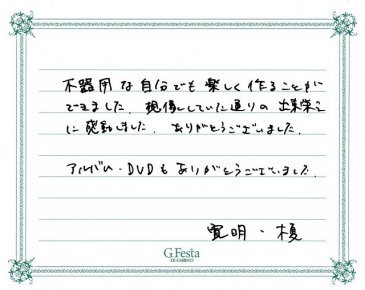 不器用な自分でも楽しく作ることが
できました。想像していた通りの出来栄え
に感動しました。ありがとうございました。
アルバム・DVDもありがとうございました。
寛明・榎
G.Festa
DIAMOND